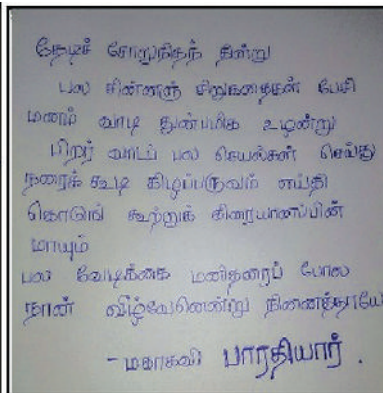 தேடிச் சோறுநிதந் தின்று
பல சின்னஞ் சிறுகதைகள் பேசி
மனம் வாடி துன்பமிக உழன்று
பிறர் வாடப் பல செயல்கள் செய்து
நரைக் கூடி கிழப்பருவம் எய்தி
கொடுங் கூற்றுக் கிரையானபின்
மாயும்
பல வேடிக்கை மனிதரைப் போல
நான் வீழ்வேனென்று நினைத்தாயோ
- மகாகவி பாரதியார்.